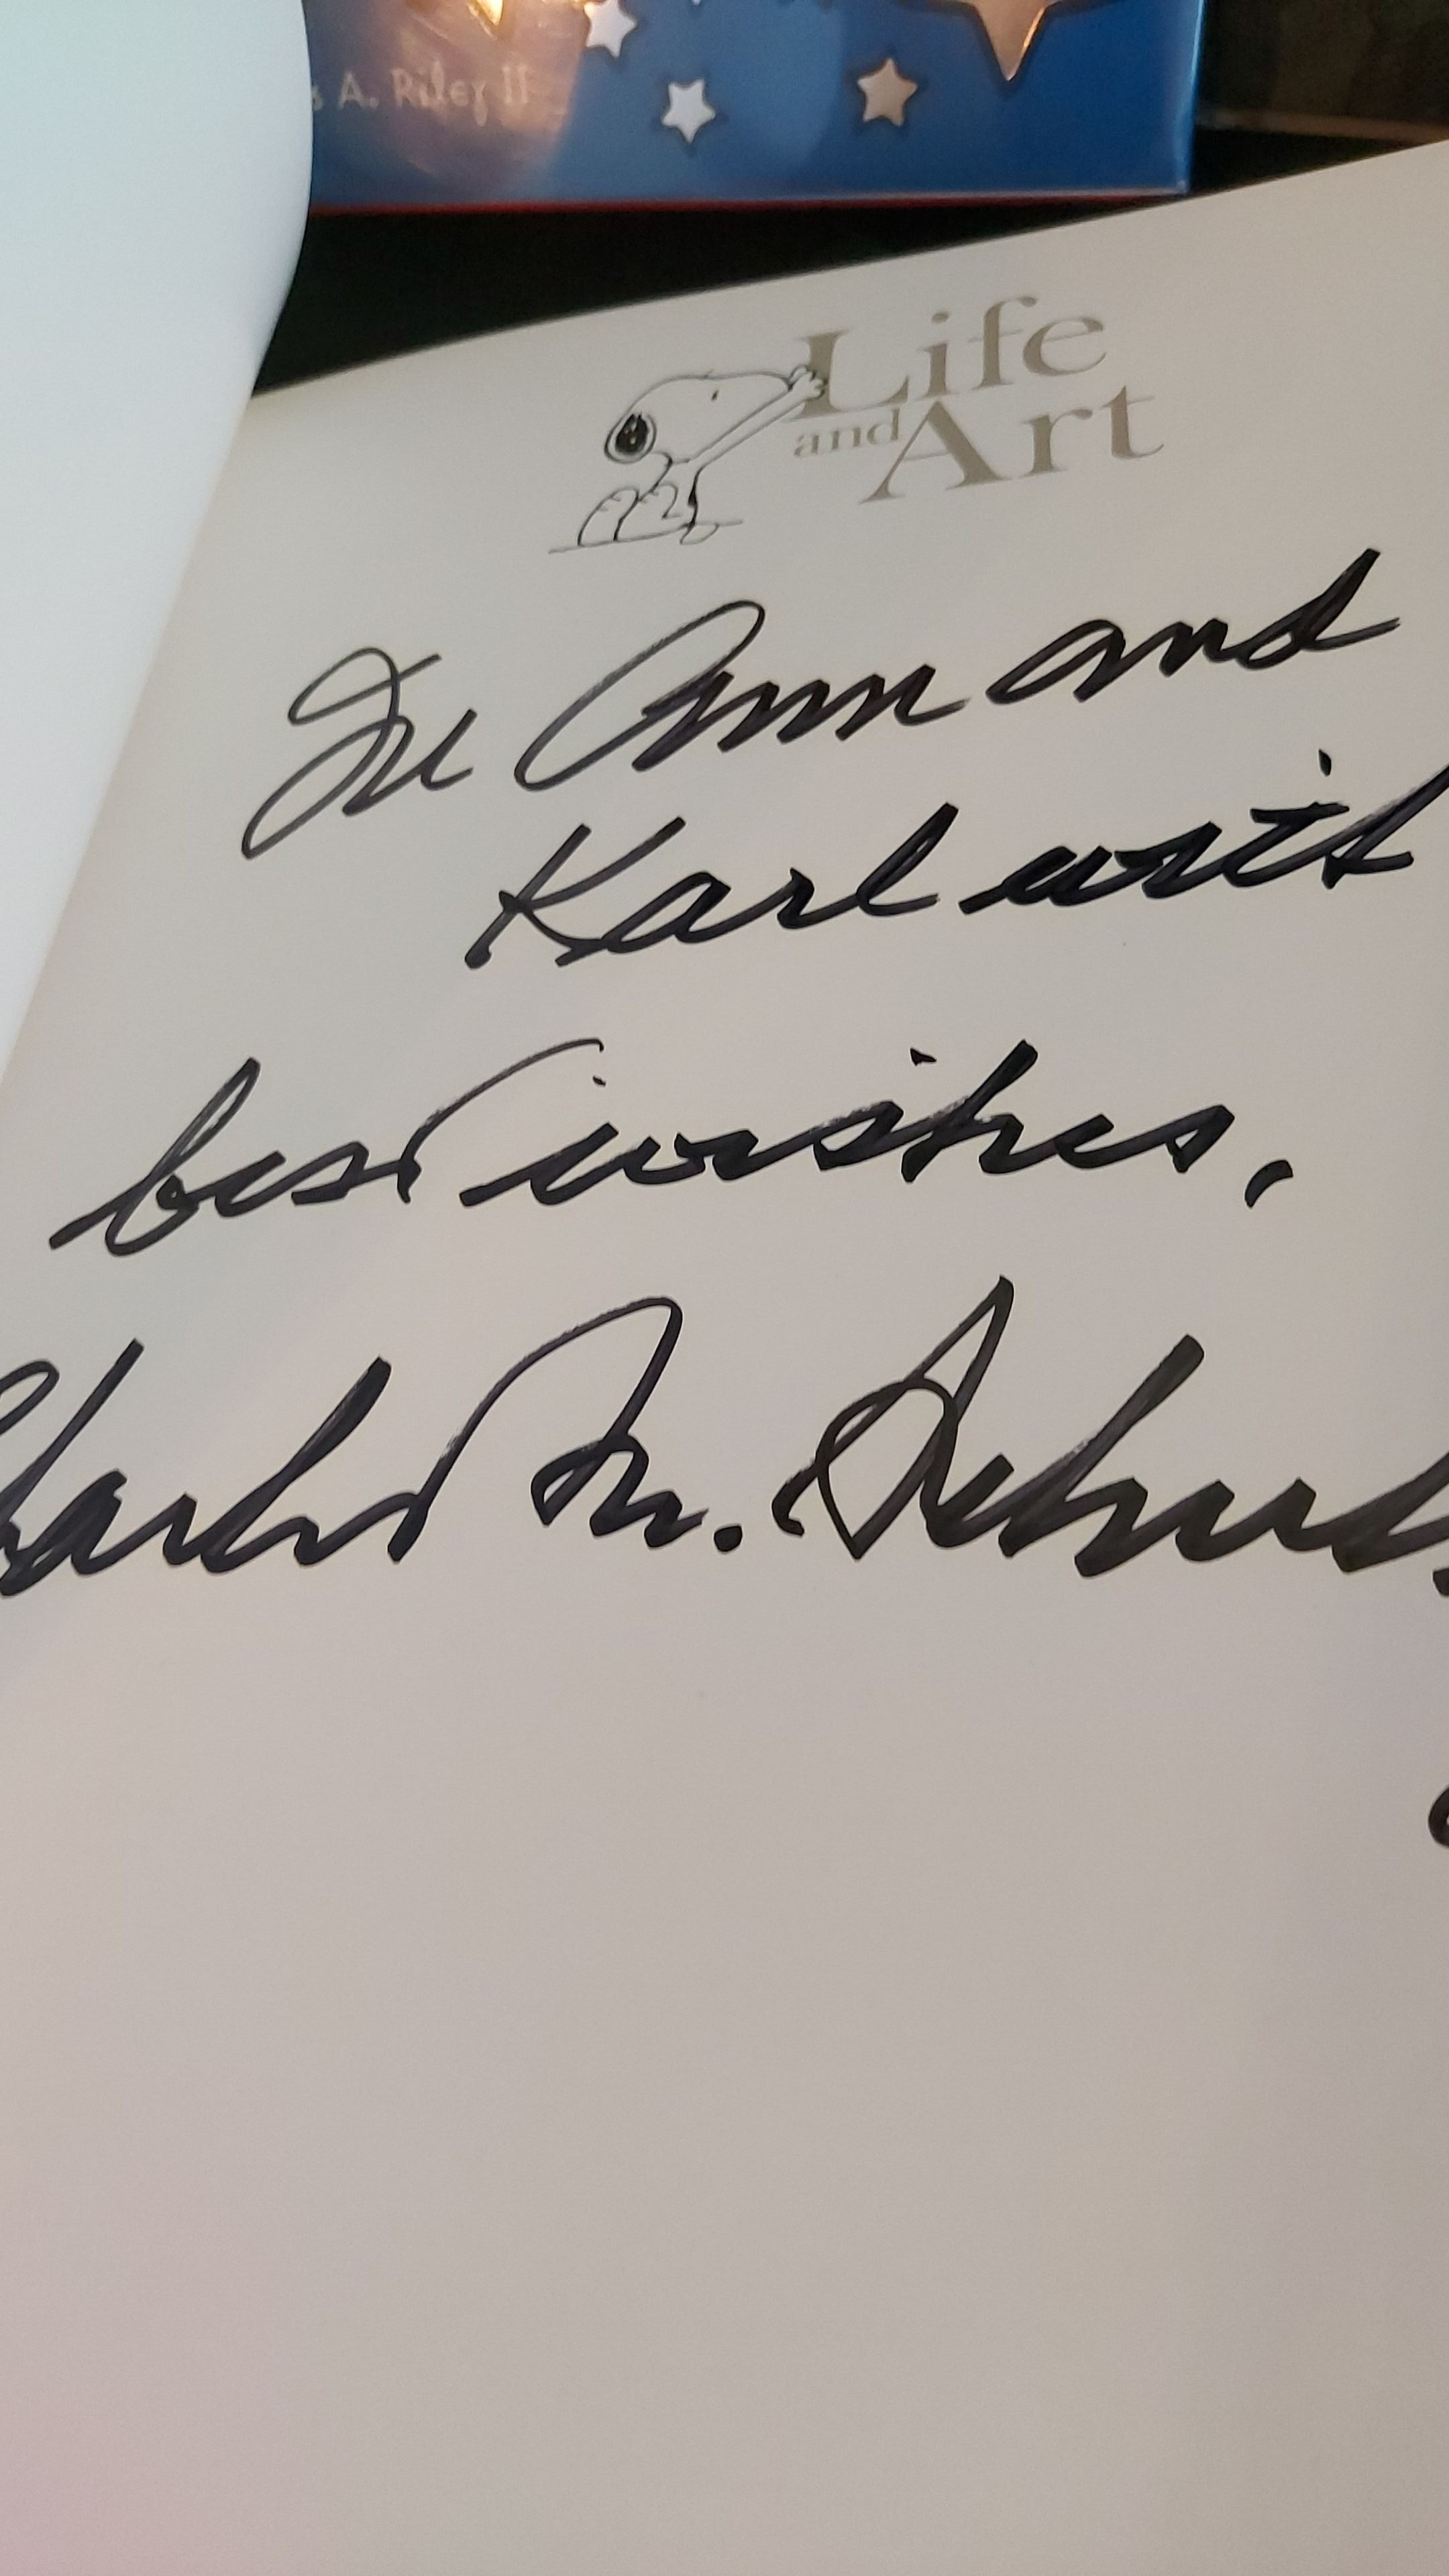 A. Riley II
Life
and Art
To Ann and
Karl with
best wishes,
Charles M. Schulz